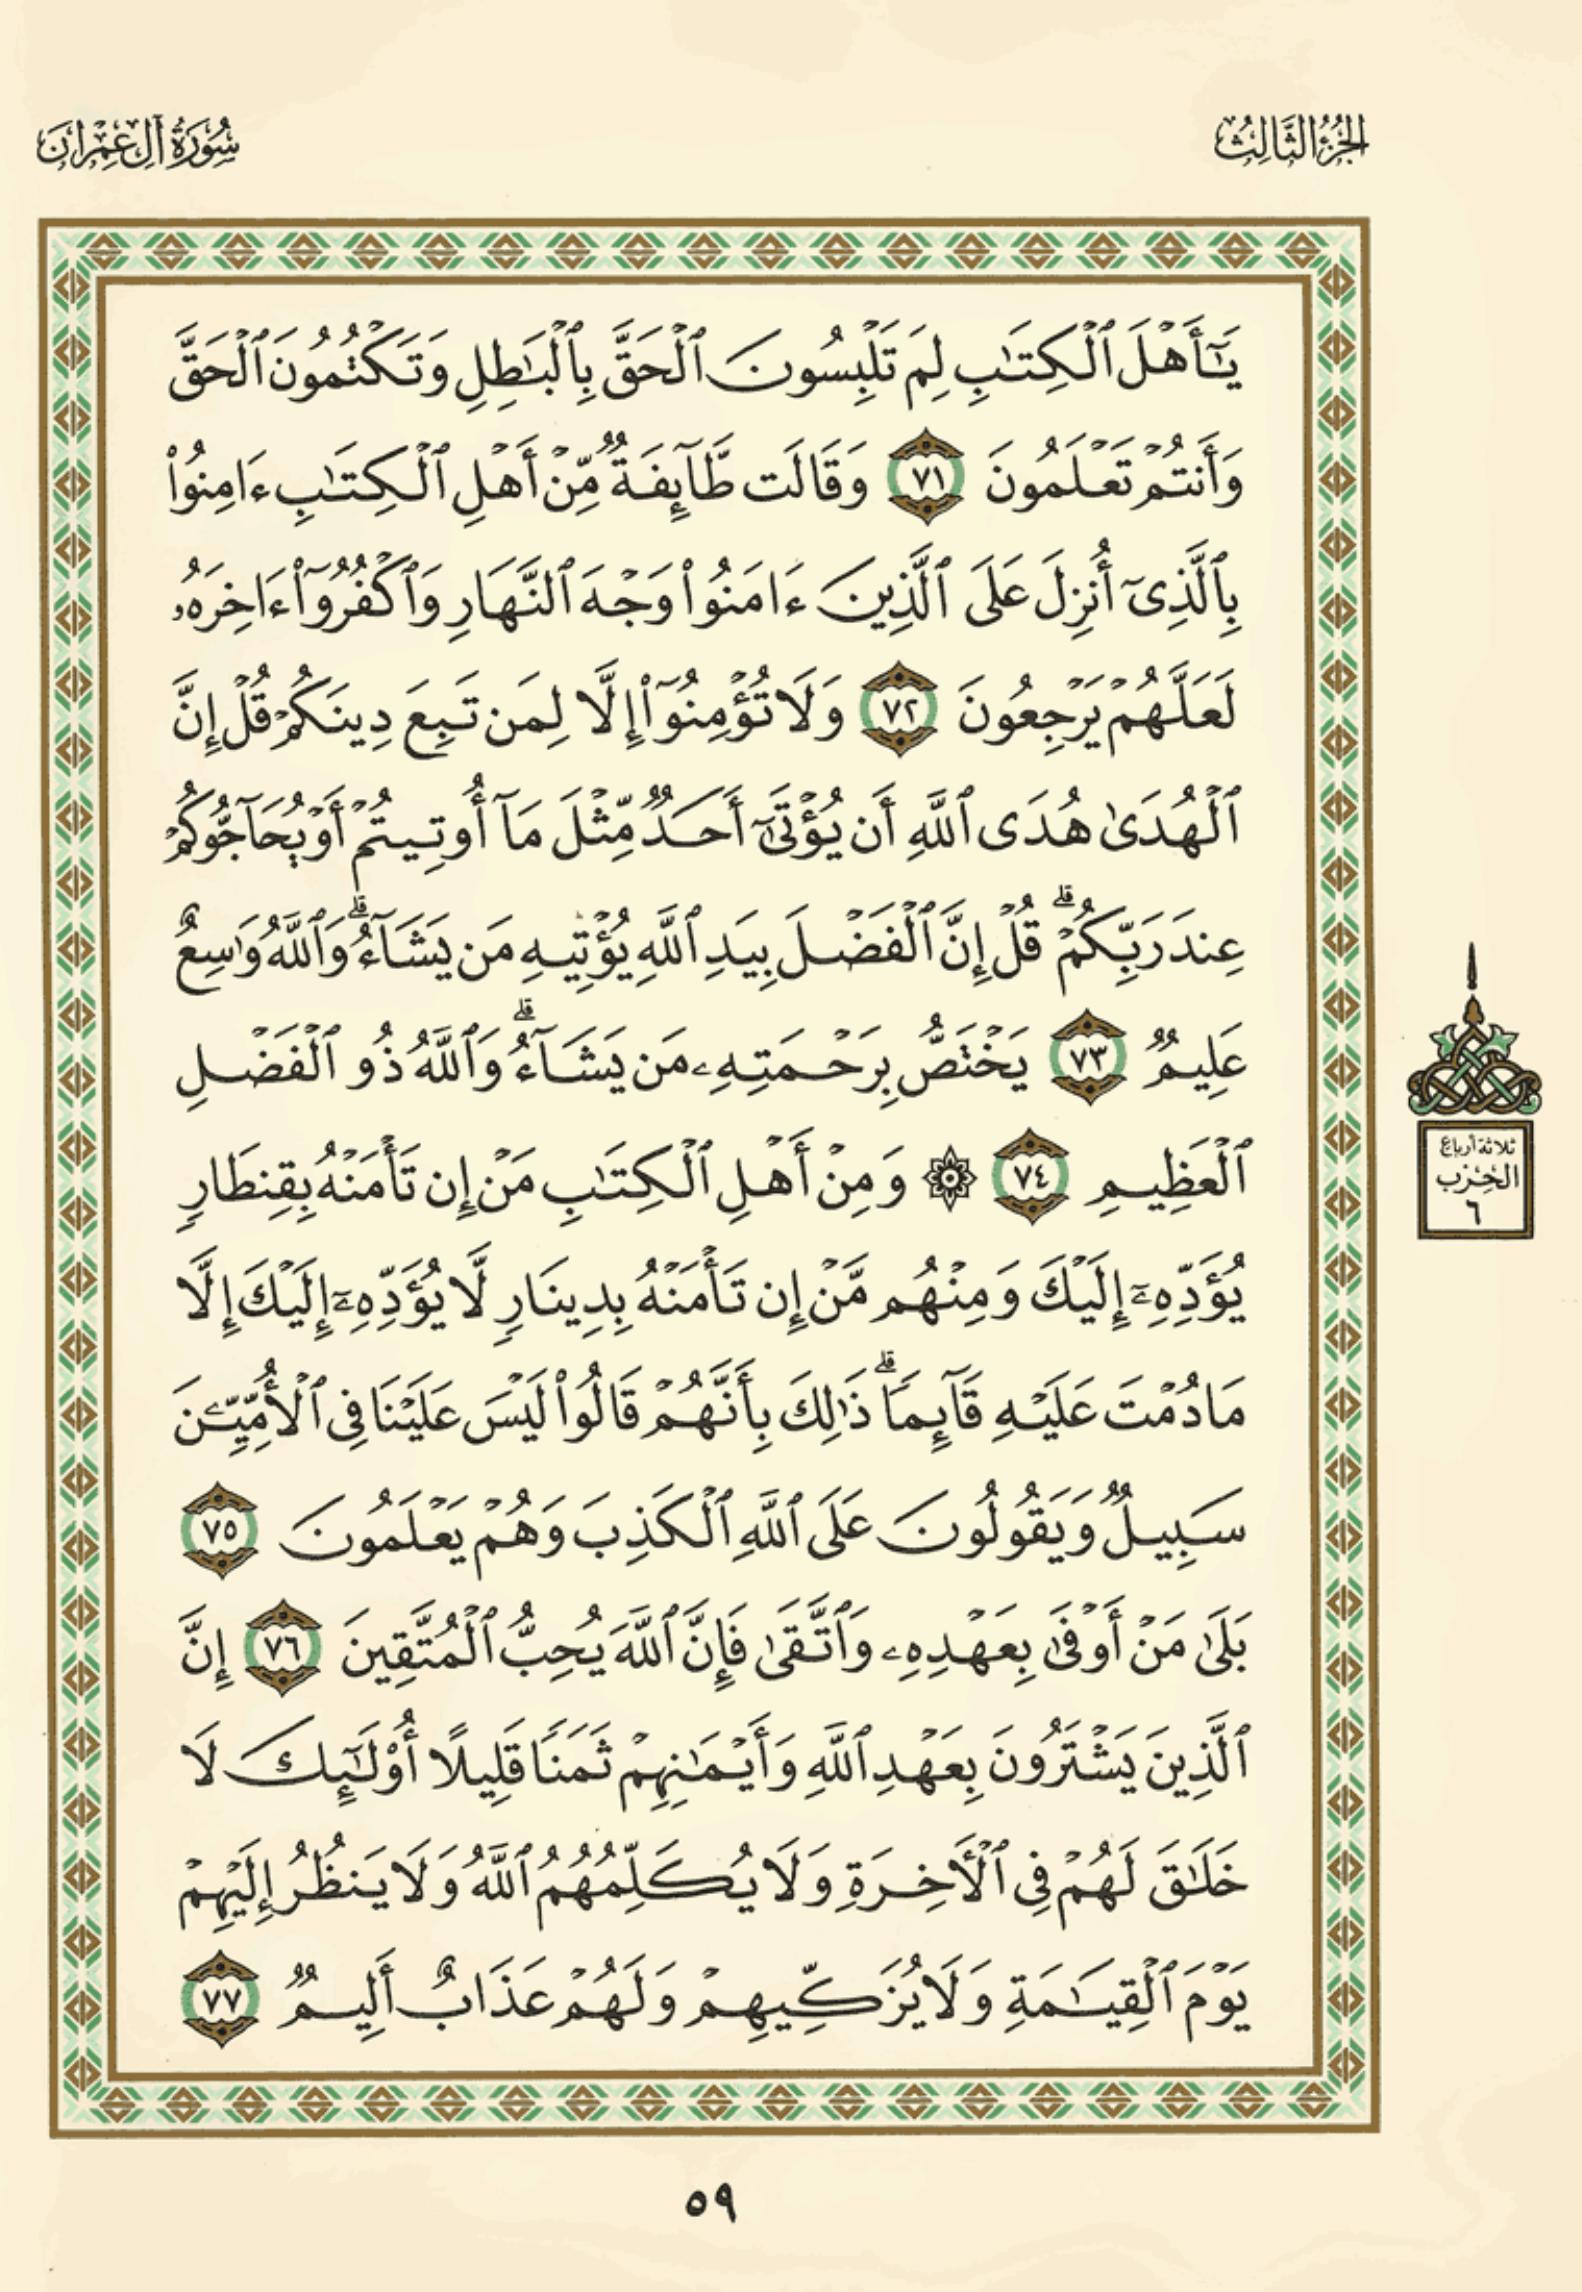 الجُزْءُ الثَّالِثُ
سُورَةُ آلِ عِمْرَانَ
يَـٰٓأَهْلَ ٱلْكِتَـٰبِ لِمَ تَلْبِسُونَ ٱلْحَقَّ بِٱلْبَـٰطِلِ وَتَكْتُمُونَ ٱلْحَقَّ
وَأَنتُمْ تَعْلَمُونَ ٧١ وَقَالَت طَّآئِفَةٌ مِّنْ أَهْلِ ٱلْكِتَـٰبِ ءَامِنُوا۟
بِٱلَّذِىٓ أُنزِلَ عَلَى ٱلَّذِينَ ءَامَنُوا۟ وَجْهَ ٱلنَّهَارِ وَٱكْفُرُوٓا۟ ءَاخِرَهُۥ
لَعَلَّهُمْ يَرْجِعُونَ ٧٢ وَلَا تُؤْمِنُوٓا۟ إِلَّا لِمَن تَبِعَ دِينَكُمْ قُلْ إِنَّ
ٱلْهُدَىٰ هُدَى ٱللَّهِ أَن يُؤْتَىٰٓ أَحَدٌ مِّثْلَ مَآ أُوتِيتُمْ أَوْ يُحَآجُّوكُمْ
عِندَ رَبِّكُمْ ۗ قُلْ إِنَّ ٱلْفَضْلَ بِيَدِ ٱللَّهِ يُؤْتِيهِ مَن يَشَآءُ ۗ وَٱللَّهُ وَٰسِعٌ
عَلِيمٌ ٧٣ يَخْتَصُّ بِرَحْمَتِهِۦ مَن يَشَآءُ ۗ وَٱللَّهُ ذُو ٱلْفَضْلِ
ٱلْعَظِيمِ ٧٤ ۞ وَمِنْ أَهْلِ ٱلْكِتَـٰبِ مَنْ إِن تَأْمَنْهُ بِقِنطَارٍ
يُؤَدِّهِۦٓ إِلَيْكَ وَمِنْهُم مَّنْ إِن تَأْمَنْهُ بِدِينَارٍ لَّا يُؤَدِّهِۦٓ إِلَيْكَ إِلَّا
مَا دُمْتَ عَلَيْهِ قَآئِمًا ۗ ذَٰلِكَ بِأَنَّهُمْ قَالُوا۟ لَيْسَ عَلَيْنَا فِى ٱلْأُمِّيِّـۧنَ
سَبِيلٌ وَيَقُولُونَ عَلَى ٱللَّهِ ٱلْكَذِبَ وَهُمْ يَعْلَمُونَ ٧٥
بَلَىٰ مَنْ أَوْفَىٰ بِعَهْدِهِۦ وَٱتَّقَىٰ فَإِنَّ ٱللَّهَ يُحِبُّ ٱلْمُتَّقِينَ ٧٦ إِنَّ
ٱلَّذِينَ يَشْتَرُونَ بِعَهْدِ ٱللَّهِ وَأَيْمَـٰنِهِمْ ثَمَنًا قَلِيلًا أُو۟لَـٰٓئِكَ لَا
خَلَـٰقَ لَهُمْ فِى ٱلْأَخِرَةِ وَلَا يُكَلِّمُهُمُ ٱللَّهُ وَلَا يَنظُرُ إِلَيْهِمْ
يَوْمَ ٱلْقِيَـٰمَةِ وَلَا يُزَكِّيهِمْ وَلَهُمْ عَذَابٌ أَلِيمٌ ٧٧
ثلاثة أرباع
الحِزْب
٦
٥٩